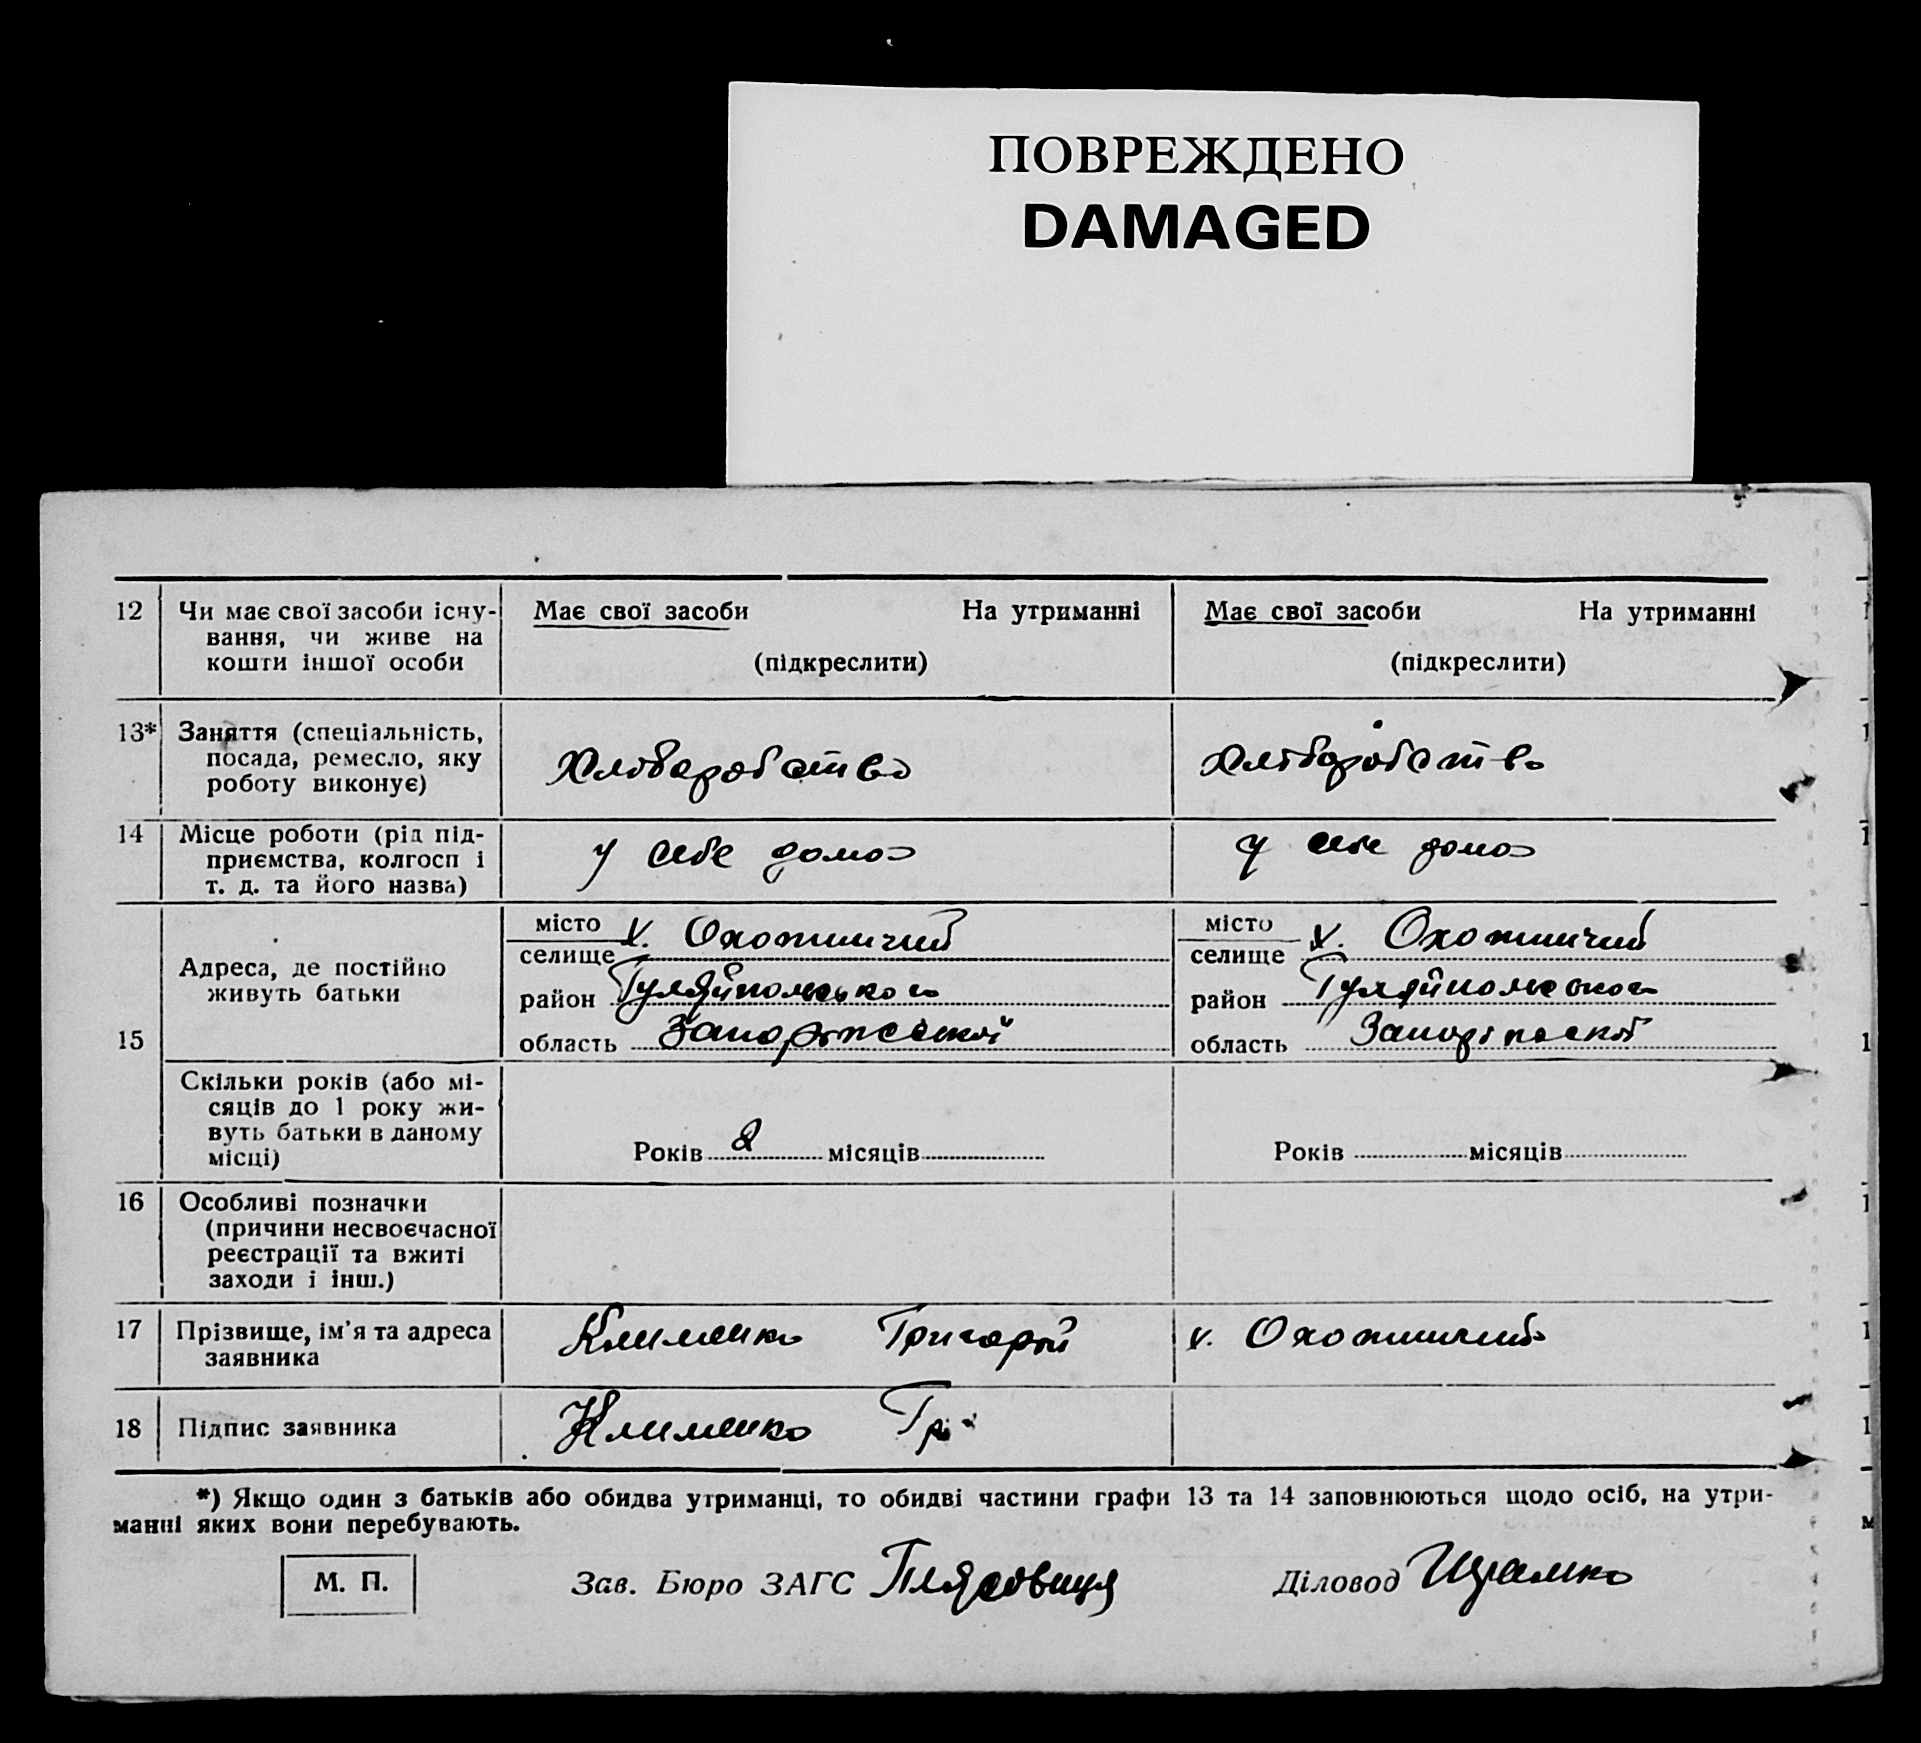 ПОВРЕЖДЕНО
DAMAGED
12 Чи має свої засоби існу-
вання, чи живе на
кошти іншої особи
Має свої засоби На утриманні
(підкреслити)
Має свої засоби На утриманні
(підкреслити)
13* Заняття (спеціальність,
посада, ремесло, яку
роботу виконує)
Хліборобство
Хліборобство
14 Місце роботи (рід під-
приємства, колгосп і
т. д. та його назва)
у себе дома
у себе дома
15
Адреса, де постійно
живуть батьки
місто
селище х. Охотничий
район Гуляйпольського
область Запоріжської
місто
селище х. Охотничий
район Гуляйпольського
область Запоріжской
Скільки років (або мі-
сяців до 1 року жи-
вуть батьки в даному
місці)
Років 2 місяців
Років місяців
16 Особливі позначки
(причини несвоєчасної
реєстрації та вжиті
заходи і інш.)
17 Прізвище, ім'я та адреса
заявника
Клименко Григорій
х. Охотничий
18 Підпис заявника
Клименко Гр
*) Якщо один з батьків або обидва утриманці, то обидві частини графи 13 та 14 заповнюються щодо осіб, на утри-
манні яких вони перебувають.
М. П.
Зав. Бюро ЗАГС
Діловод Шрамко